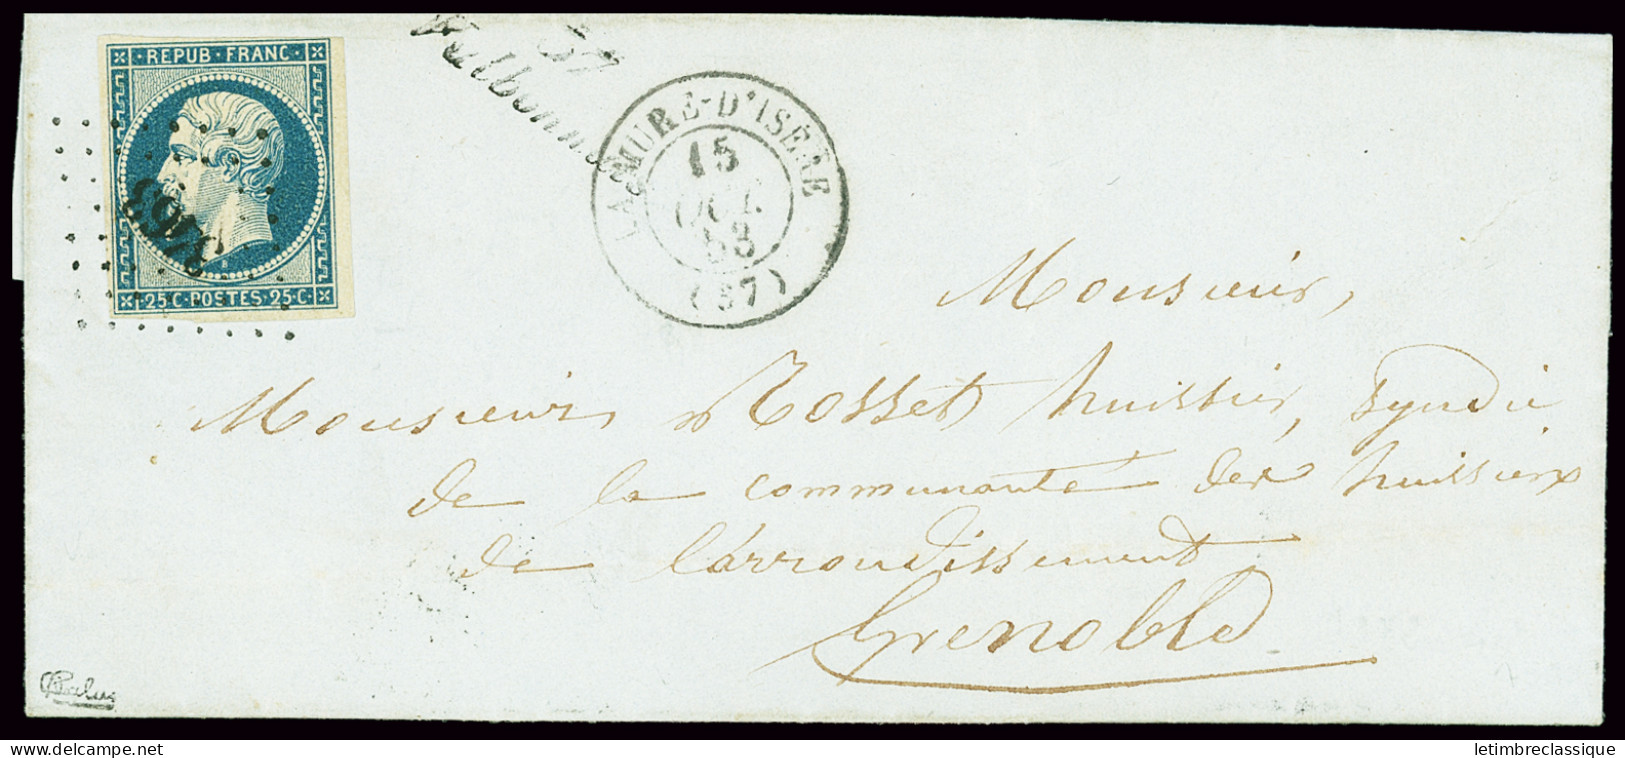 REPUB·FRANC·
25·C·POSTES·25·C·
37
Valbonnais
LA MURE-D'ISÈRE
15
OCT.
53
(37)
Monsieur,
Monsieur Rosset huissier, syndic
de la communauté des huissiers
de l'arrondissement
Grenoble
delcampe.net
letimbreclassique